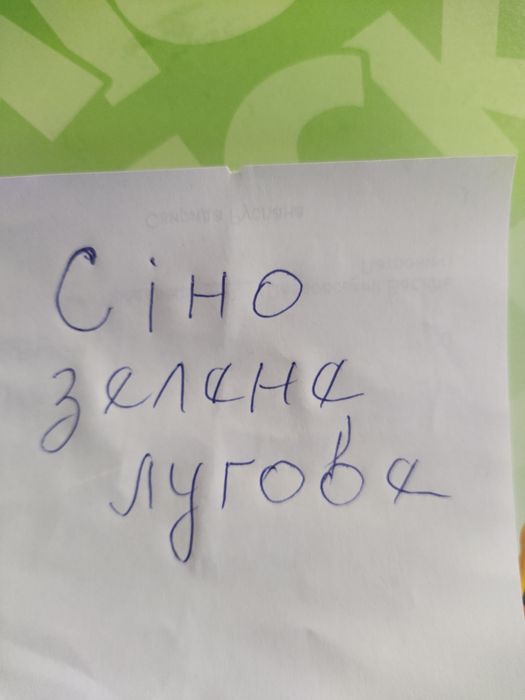 Сіно
зелене
лугове